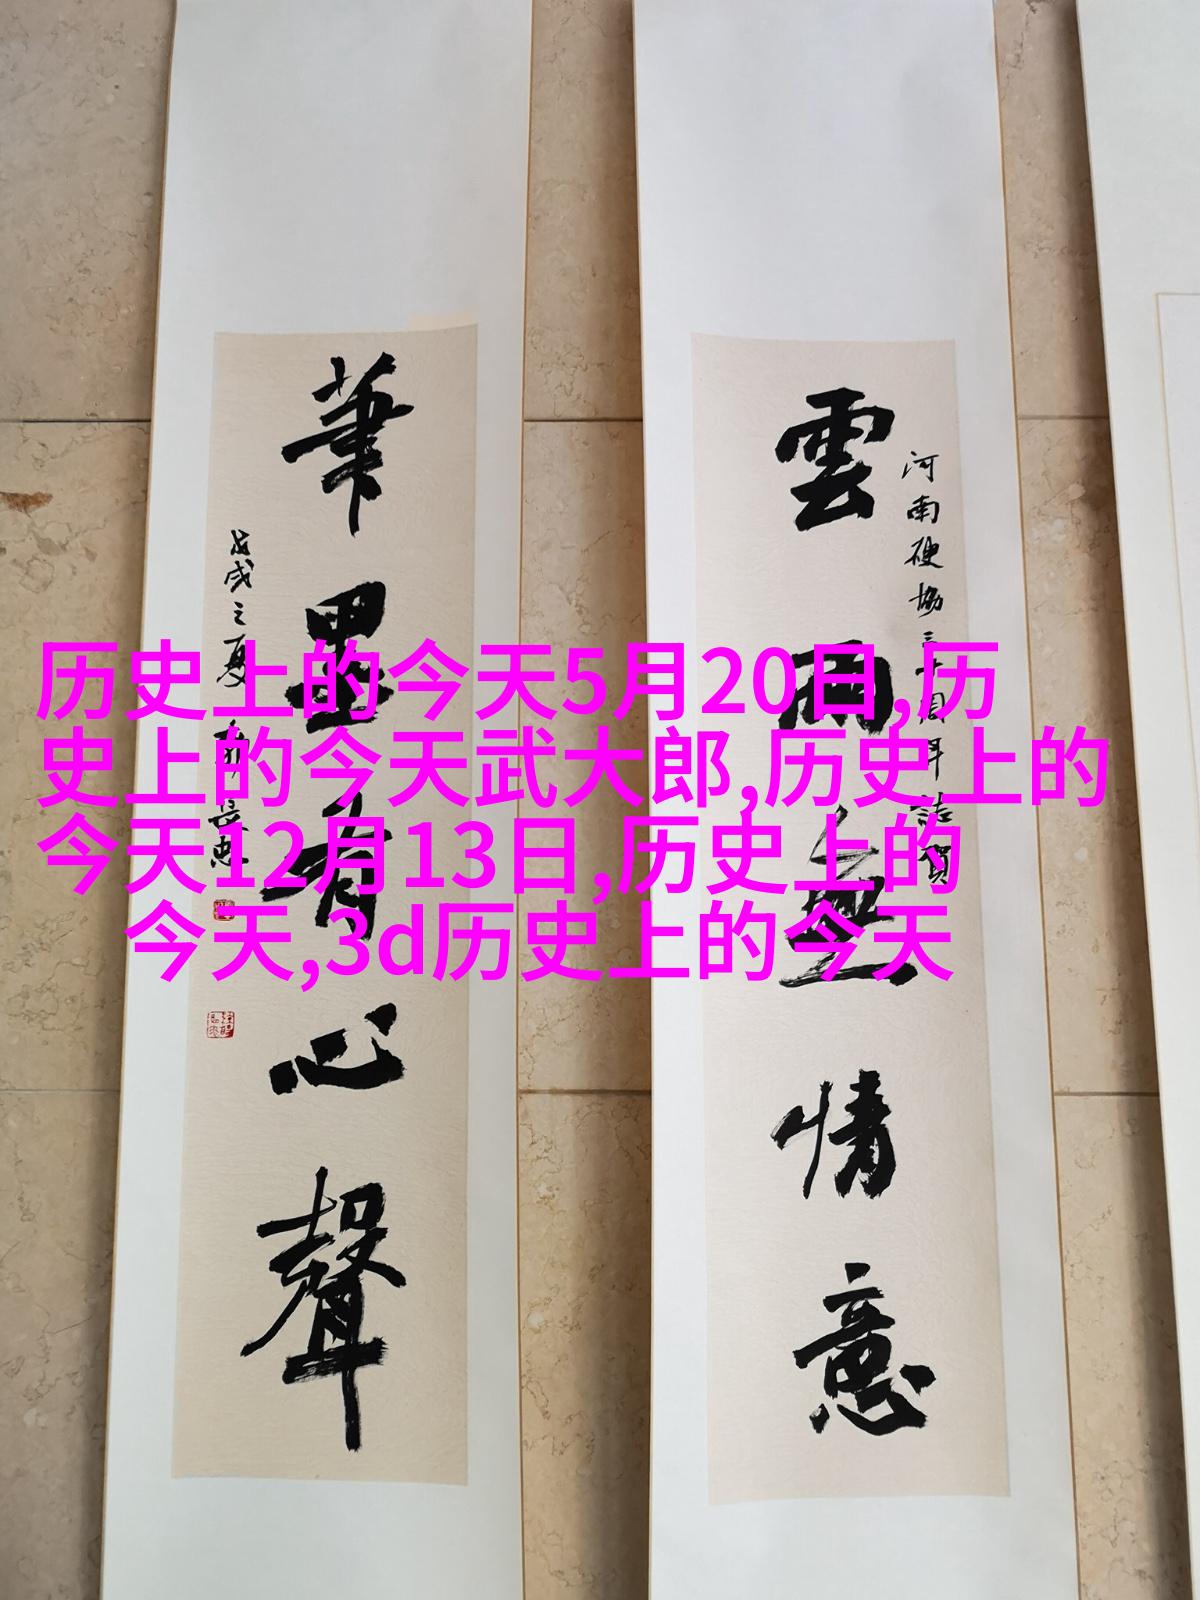 历史上的今天5月20日,历
史上的今天武大郎,历史上的
今天12月13日,历史上的
今天,3d历史上的今天
雲雨無情意
河南硬協三十周年誌賀
筆墨有心聲
戊戌之夏